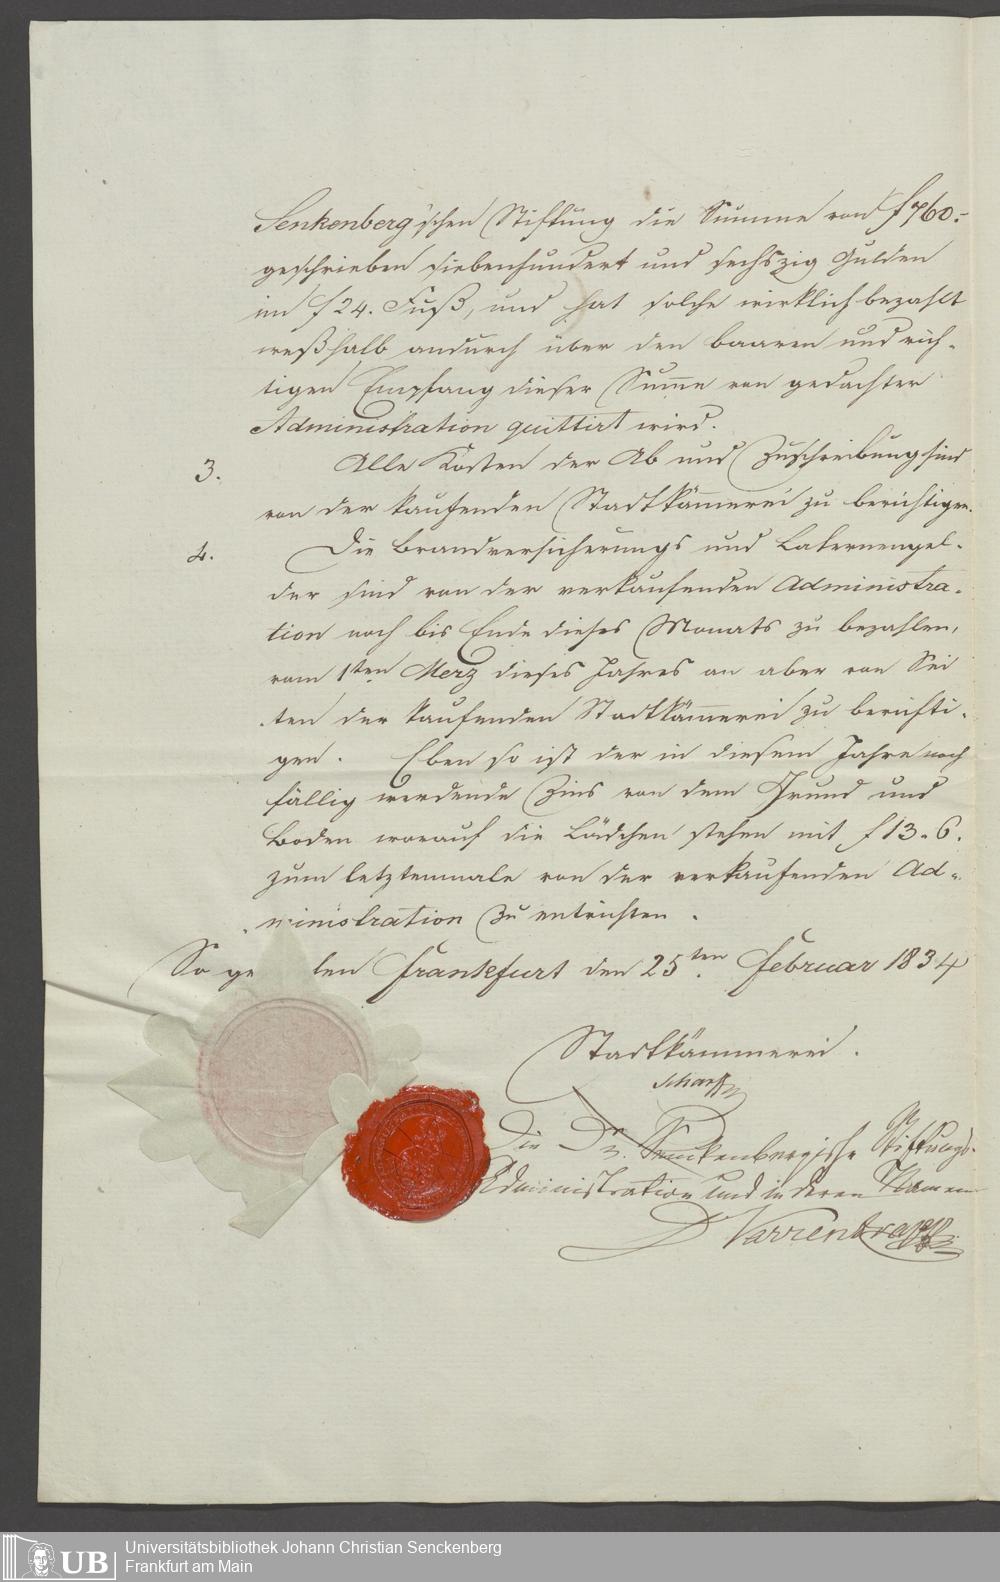 Senkenberg'schen Stiftung die Summe von f 760.-
geschrieben siebenhundert und sechszig Gulden
im f 24. Fuß, und hat solche wirklich bezahlt
weßhalb andurch über den baaren und rich-
tigen Empfang dieser Sume von gedachter
Administration quittirt wird.
3. Alle Kosten der Ab und Zuschreibung sind
von der kaufenden Stadtkämerei zu berichtigen.
4. Die Brandversicherungs und Laternengel-
der sind von der verkaufenden Administra-
tion noch bis Ende dieses Monats zu bezahlen,
vom 1ten Merz dieses Jahres an aber von Sei
ten der kaufenden Stadtkämerei zu berichti-
gen. Eben so ist der in diesem Jahre noch
fällig werdende Zins von dem Grund und
Boden worauf die Lädchen stehen mit f 13.6.
zum letztenmale von der verkaufenden Ad-
ministration zu entrichten.
So ge len Frankfurt den 25ten Februar 1834
Stadtkämmerei.
Scharff
Die Dr. Senckenbergische Stiftungs-
Administration und in deren Namen
D Varrentrapp
UB
Universitätsbibliothek Johann Christian Senckenberg
Frankfurt am Main